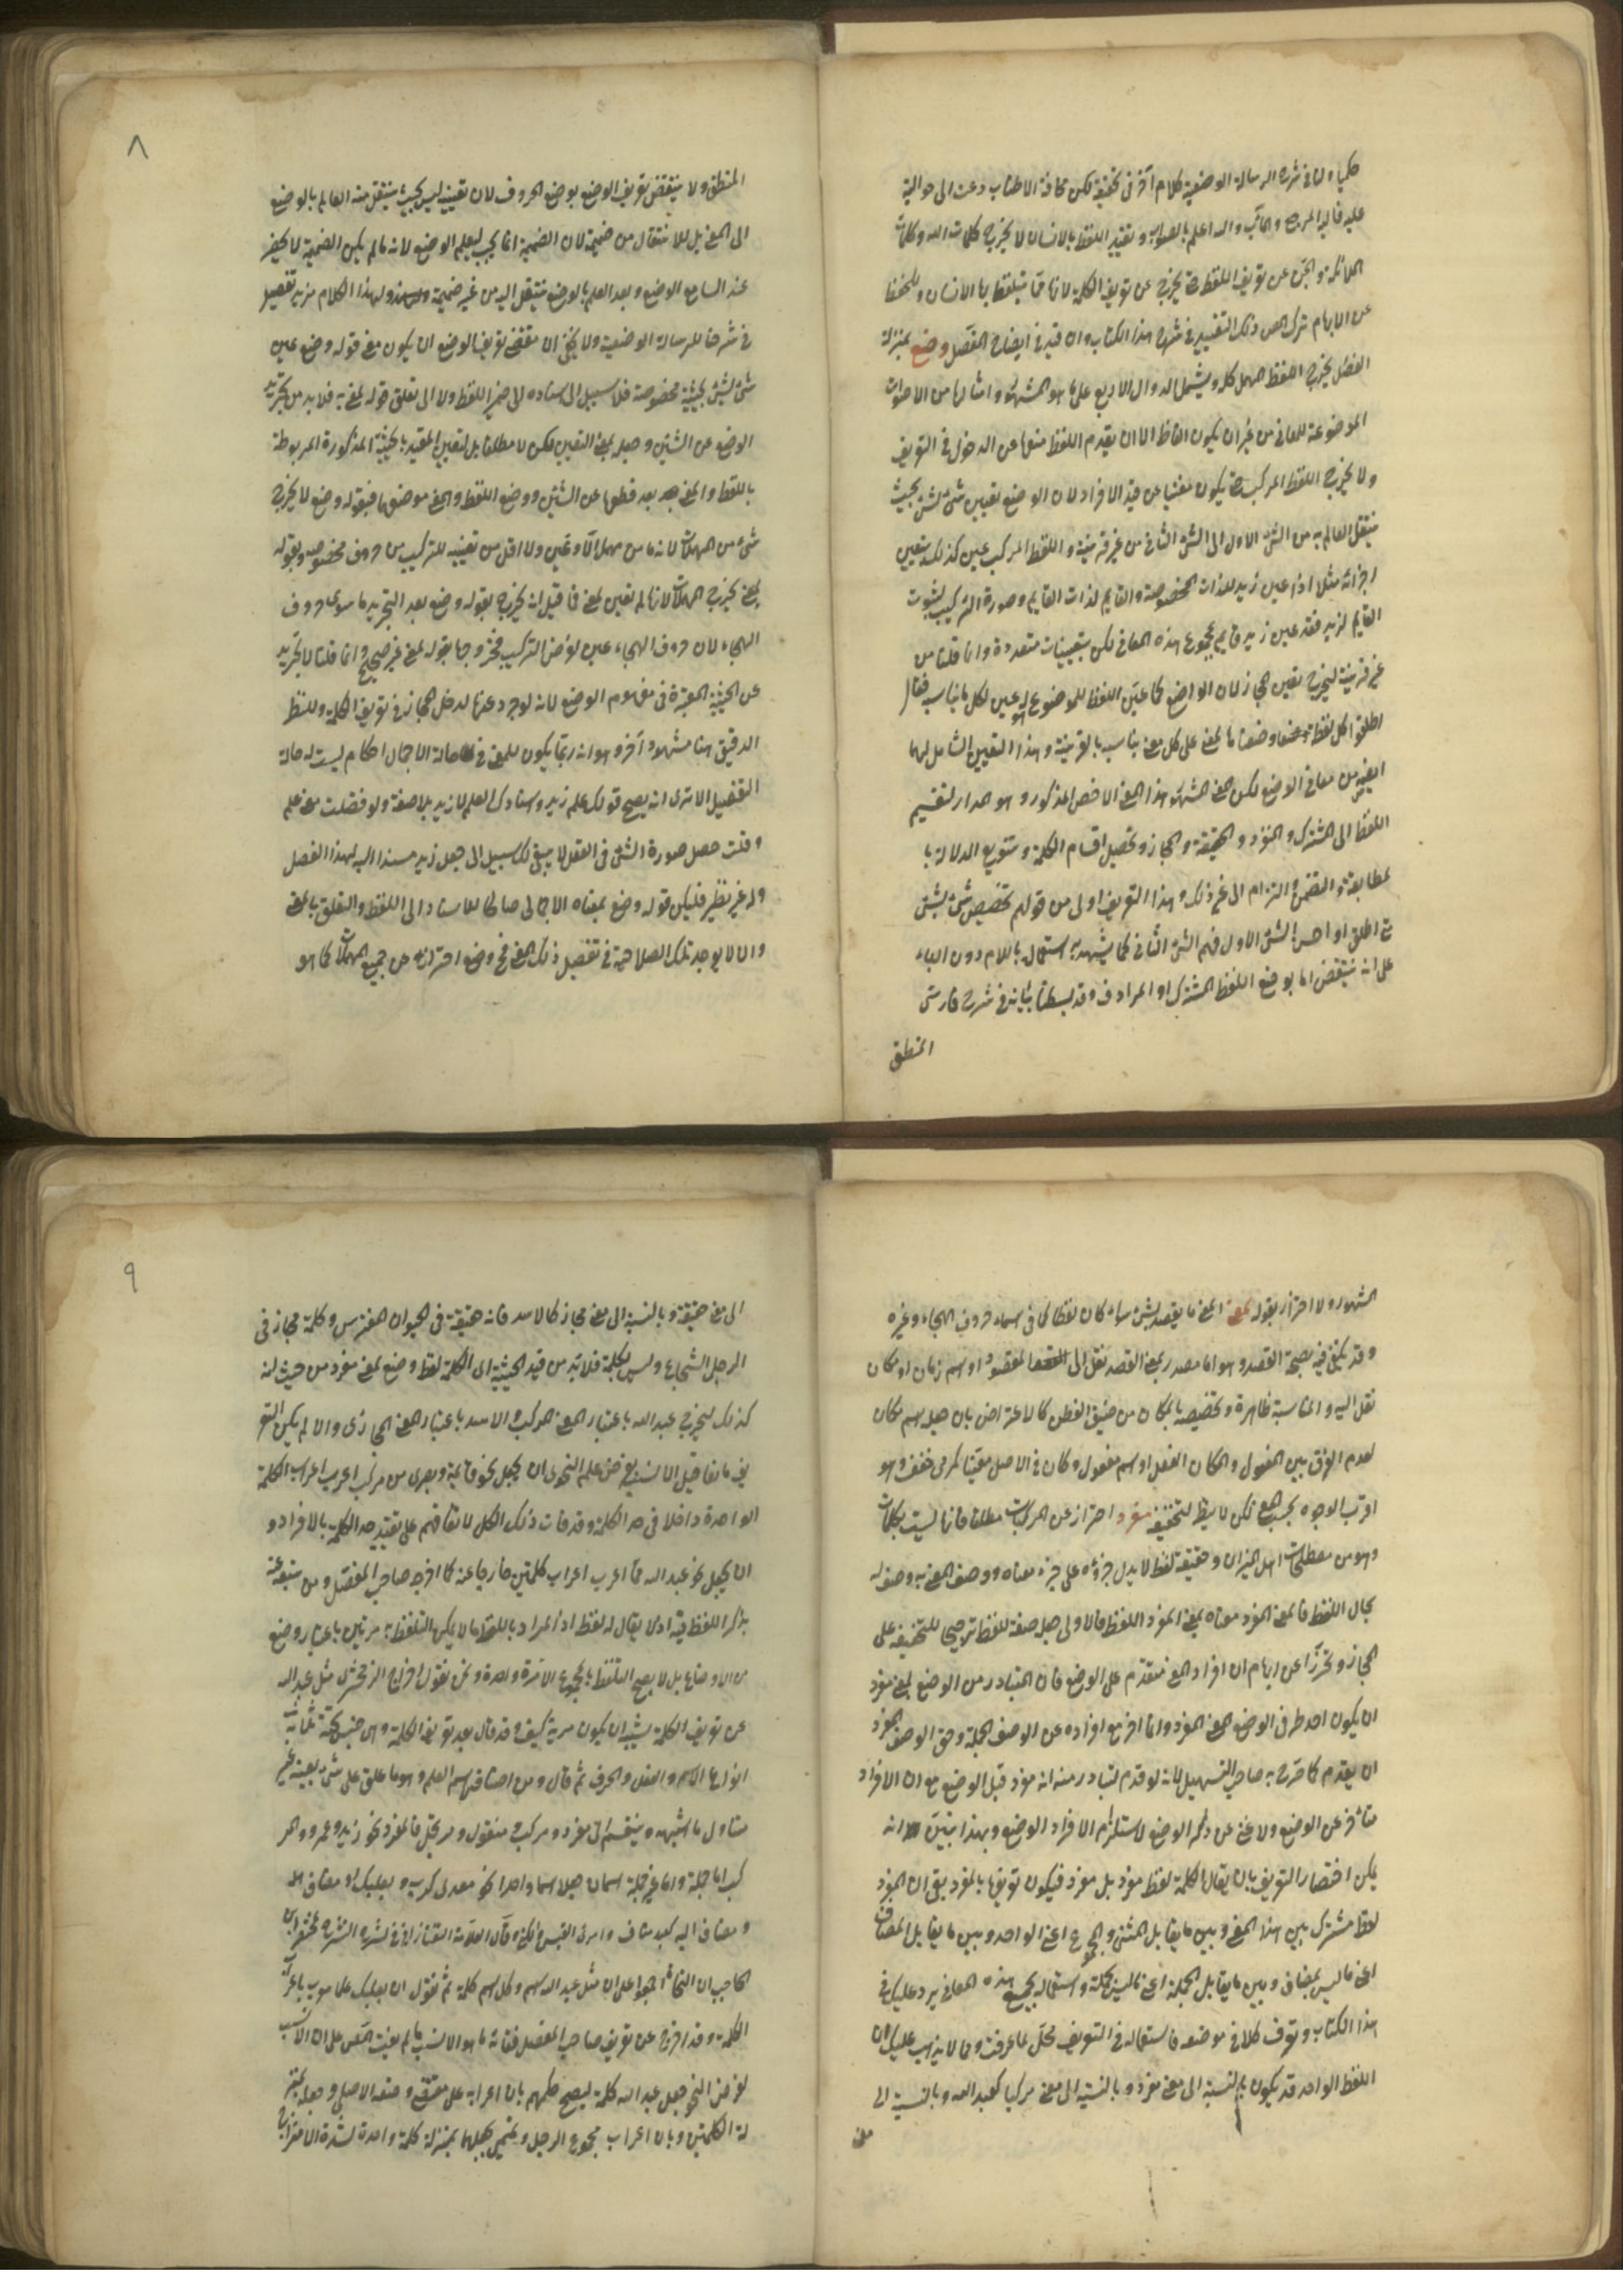 حكياه لنا في شرح الرسالة الوضعية كلام آخر في تحقيقه لكن مخافة الاطناب دعت الى حوالته
عليه فاليه المرجع والمآب والله اعلم بالصواب وتقييد اللفظ بالانسان لا يخرج كلمات الله وكلمات
الملائكة والجن عن تعريف اللفظ حتى يخرج عن تعريف الكلمة لانها مما يتلفظ بها الانسان وللتحفظ
عن الابهام ترك المص ذلك التقييد في شرح هذا الكتاب وان قيد في ايضاح المفصل وضع بمنزلة
الفصل يخرج اللفظ المهمل كله ويشمل الدوال الاربع على ما هو المشهور وامثالها من الاصوات
الموضوعة للمعاني من غير ان يكون الفاظا الا ان يقدم اللفظ منعها عن الدخول في التعريف
ولا يخرج اللفظ المركب حتى يكون مغنيا عن قيد الافراد لان الوضع تعيين شئ لشئ بحيث
ينتقل العالم به من الشئ الاول الى الشئ الثاني من غير قرينة واللفظ المركب عين كذلك بتعيين
اجزائه مثلا اذا عين زيد للذات المخصوصة والقايم لذات القايم وصورة التركيب لثبوت
القايم لزيد فقد عين زيد قايم لمجموع هذه المعاني لكن بتعيينات متعددة وانما قلنا من
غير قرينة ليخرج تعيين المجاز لان الواضع كما عين اللفظ للموضوع له عين لكل ما يناسبه فقال
اطلقوا كل لفظ وضعناه لمعنى على كل معنى يناسبه بالقرينة وهذا التعيين الشامل لهما
ايضا من معاني الوضع لكن المعنى المشهور هذا المعنى الاخص المذكور وهو المدار لتقسيم
اللفظ الى المشترك والمنفرد والحقيقة والمجاز وتحصيل اقسام الكلمة وتنويع الدلالة با
لمطابقة والتضمن والتزام الى غير ذلك وهذا التعريف اولى من قولهم تخصيص شئ بشئ
متى اطلق او احس الشئ الاول فهم الشئ الثاني كما يشهد به استعماله باللام دون الباء
على انه ينتقض اما بوضع اللفظ المشترك او المرادف وقد بسطنا بيانه في شرح فارسي
المنطق
٨
المنطق ولا ينتقض تعريف الوضع بوضع الحروف لان تعيينه ليس بحيث ينتقل منه العالم بالوضع
الى المعنى بل للانتقال من ضميمة لان الضميمة انما يجب ليعلم الوضع لانه ما لم يكن الضميمة لا يحضر
عند السامع الوضع وبعد العلم بالوضع ينتقل اليه من غير ضميمة ولهذا الكلام مزيد تفصيل
في شرحنا للرسالة الوضعية ولا يخفى ان مقتضى تعريف الوضع ان يكون معنى قوله وضع عين
شئ لشئ بحيثية مخصوصة فلا سبيل الى اسناده الى ضمير اللفظ ولا الى تعلق قوله لمعنى به فلا بد من تجريد
الوضع عن الشئين وجعله بمعنى التعيين لكن لا مطلقا بل لتعيين المقيد بالحيثية المذكورة المربوطة
باللفظ والمعنى بعد قطعها عن الشئين ووضع اللفظ والمعنى موضعهما فبقوله وضع لا يخرج
شئ من المهملات لانه ما من مهمل الا وعين ولا اقل من تعيينه للتركيب من حروف مخصوصة وبقوله
لمعنى يخرج المهملات لانها لم تعين لمعنى فما قيل انه يخرج بقوله وضع بعد التجريد ما سوى حروف
الهجاء لان حروف الهجاء عين لغرض التركيب فخروجها بقوله لمعنى غير صحيح وانما قلنا لا تجريد
عن الحيثية المعتبرة في مفهوم الوضع لانه لو جرد عنها لدخل المجاز في تعريف الكلمة وللنظر
الدقيق هنا مشهد آخر وهو انه ربما يكون للمعنى في حالة الاجمال احكام ليست له حالة
التفصيل الا ترى انه يصح قولك علم زيد واسنادك العلم لا زيد بلا صفة ولو فصلت معنى علم
وقلت حصل صورة الشئ في العقل لا يبقى لك سبيل الى جعل زيد مسندا اليه لهذا الفصل
وله غير نظير فليكن قوله وضع بمعناه الاجمالي صالحا للاسناد الى اللفظ والتعلق بالمعنى
وان لا يوجد تلك الصلاحية في تفصيل ذلك المعنى فح وضع احترازه عن جميع المهملات كما هو
المشهور ولا احتراز بقوله لمعنى المعنى ما يقصد بشئ سواء كان لفظا كما في اسماء حروف الهجاء وغيره
وقد يكتفى فيه بصحة القصد وهو اما مصدر بمعنى القصد نقل الى المقصود او اسم زمان او مكان
نقل اليه والمناسبة ظاهرة وتخصيصه بالمكان من ضيق الفطن كالاعتراض بان جعله اسم مكان
لعدم الفرق بين المفعول والمكان الفعل او اسم مفعول وكان في الاصل معنيا كمرمي خفف وهو
اقرب الوجوه بحسب المعنى لكن لا يظهر لتخفيفه مفرد احتراز عن المركبات مطلقا فانها ليست بكلمات
وهو من مصطلحات اهل الميزان وحقيقته لفظ لا يدل جزؤه على جزء معناه ووصف المعنى به وصف له
بحال اللفظ فالمعنى المفرد معناه بمعنى المفرد اللفظ فالاولى جعل صفة للفظ ترجيحا للحقيقة على
المجاز وتحرزا عن ايهام ان افراد المعنى متقدم على الوضع فان المتبادر من الوضع لمعنى مفرد
ان يكون احد طرفي الوضع المعنى المفرد وانما اخر مع افراده عن الوصف الجملة وحق الوصف المفرد
ان يقدم كما صرح به صاحب التسهيل لانه لو قدم لتبادر منه انه مفرد قبل الوضع مع ان الافراد
متأخر عن الوضع ولا غنى عن ذكر الوضع لاستلزام الافراد الوضع وبهذا تبين انه
يمكن اختصار التعريف بان يقال الكلمة لفظ مفرد بل مفرد فيكون تعريفا بالمفرد بقي ان المفرد
لفظ مشترك بين هذا المعنى وبين ما يقابل المثنى والمجموع اعني الواحد وبين ما يقابل المضاف
اعني ما ليس بمضاف وبين ما يقابل الجملة اعني ما ليس بجملة واستعماله بجميع هذه المعاني يرد عليك في
هذا الكتاب وتعرف كلا في موضعه فاستعماله في التعريف مخل لما عرفت ومما لا يذهب عليك ان
اللفظ الواحد قد يكون بالنسبة الى معنى مفردا وبالنسبة الى معنى مركبا كعبد الله وبالنسبة الى
معنى
٩
الى معنى حقيقة وبالنسبة الى معنى مجاز كالاسد فانه حقيقة في الحيوان المفترس وكلمة مجاز في
الرجل الشجاع وليس بكلمة فلا بد من قيد الحيثية اى الكلمة لفظ وضع لمعنى مفرد من حيث انه
كذلك ليخرج عبد الله باعتبار المعنى المركب والاسد باعتبار المعنى المجازي والا لم يكن التعر
يف مانعا قيل الانسب بغرض علم النحو ان يجعل نحو قائمة وبصري من مركب اعرب اعراب الكلمة
الواحدة داخلا في حد الكلمة وقد فات ذلك الكل لاتفاقهم على تقييد حد الكلمة بالافراد و
ان يجعل نحو عبد الله مما اعرب اعراب كلمتين خارجا عنه كما اخرجه صاحب المفصل ومن تبعه
بذكر اللفظة فيه اذ لا يقال له لفظة اذ المراد باللفظة ما لا يمكن التلفظ به مرتين باعتبار وضع
من الاوضاع بل لا يصح التلفظ بالمجموع الا مرة واحدة ونحن نقول اخراج الزمخشري مثل عبد الله
عن تعريف الكلمة يشبه ان يكون مرية كيف وقد قال بعد تعريف الكلمة وهي جنس تحته ثلثة
انواع الاسم والفعل والحرف ثم قال ومن اصناف الاسم العلم وهو ما علق على شئ بعينه غير
متناول ما اشبهه وينقسم الى مفرد ومركب ومنقول ومرتجل فالمفرد نحو زيد وعمرو والمر
كب اما جملة واما غير جملة اسمان جعلا اسما واحدا نحو معدي كرب وبعلبك او مضاف
ومضاف اليه كعبد مناف وامرئ القيس والكنى وقال العلامة التفتازاني في شرحه لمختصر ابن
الحاجب ان النحاة اجمعوا على ان مثل عبد الله اسم وكل اسم كلمة ثم نقول ان بعلبك علما معرب باعراب
الكلمة وقد اخرج عن تعريف صاحب المفصل ففاته ما هو الانسب ما لم يفت المص على ان الانسب
لغرض النحو جعل عبد الله كلمة ليصح حكمهم بان اعرابه على مقتضى وضعه الاصلي وجعله بمنز
لة الكلمتين وبان اعراب مجموع الرجل وتميمي بجعلهما بمنزلة كلمة واحدة لشدة الامتزاج